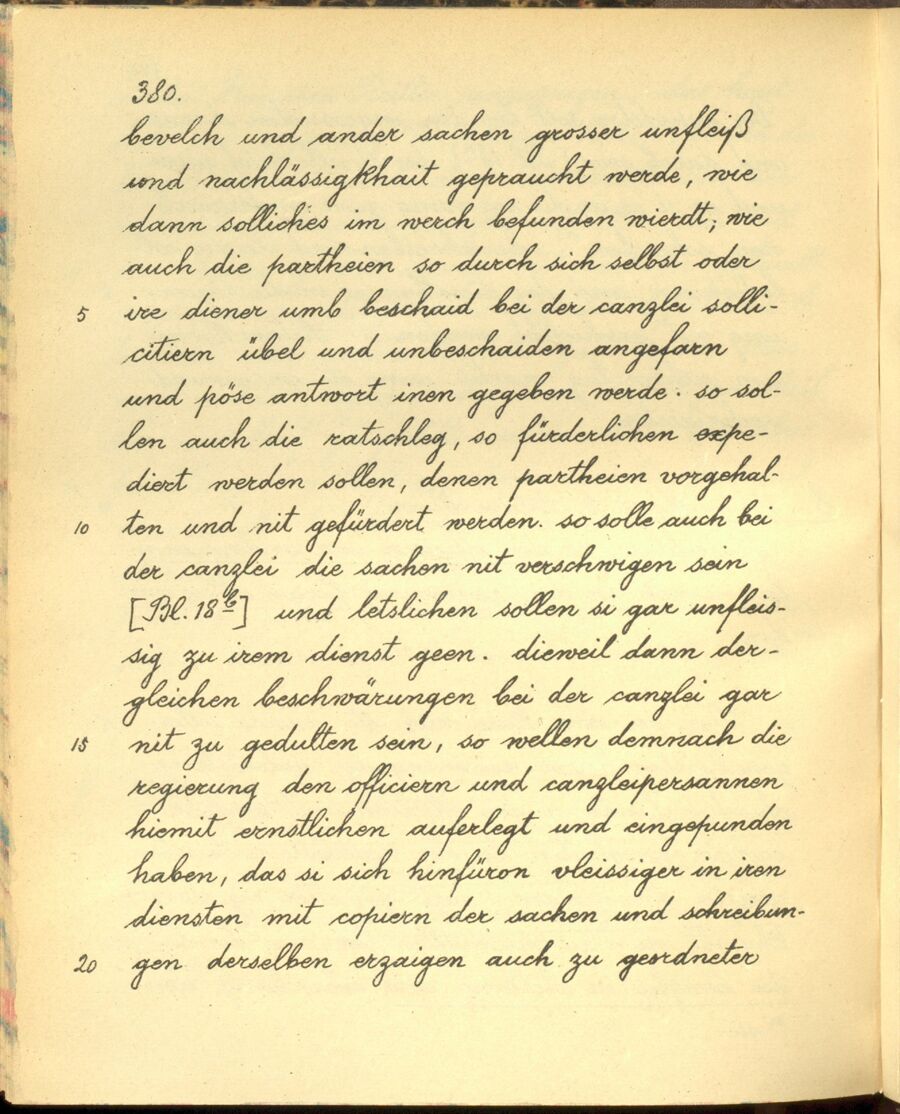 380.
bevelch und ander sachen grosser unfleiß
und nachlässigkhait gepraucht werde, wie
dann solliches im werch befunden wierdt; wie
auch die partheien so durch sich selbst oder
5 ire diener umb beschaid bei der canzlei solli-
citiern übel und unbeschaiden angefarn
und pöse antwort inen gegeben werde. so sol-
len auch die ratschleg, so fürderlichen expe-
diert werden sollen, denen partheien vorgehal-
10 ten und nit gefürdert werden. so solle auch bei
der canzlei die sachen nit verschwigen sein
[Bl. 18b] und letslichen sollen si gar unfleis-
sig zu irem dienst geen. dieweil dann der-
gleichen beschwärungen bei der canzlei gar
15 nit zu gedulten sein, so wellen demnach die
regierung den officiern und canzleipersannen
hiemit ernstlichen auferlegt und eingepunden
haben, das si sich hinfüron vleissiger in iren
diensten mit copiern der sachen und schreibun-
20 gen derselben erzaigen auch zu geordneter